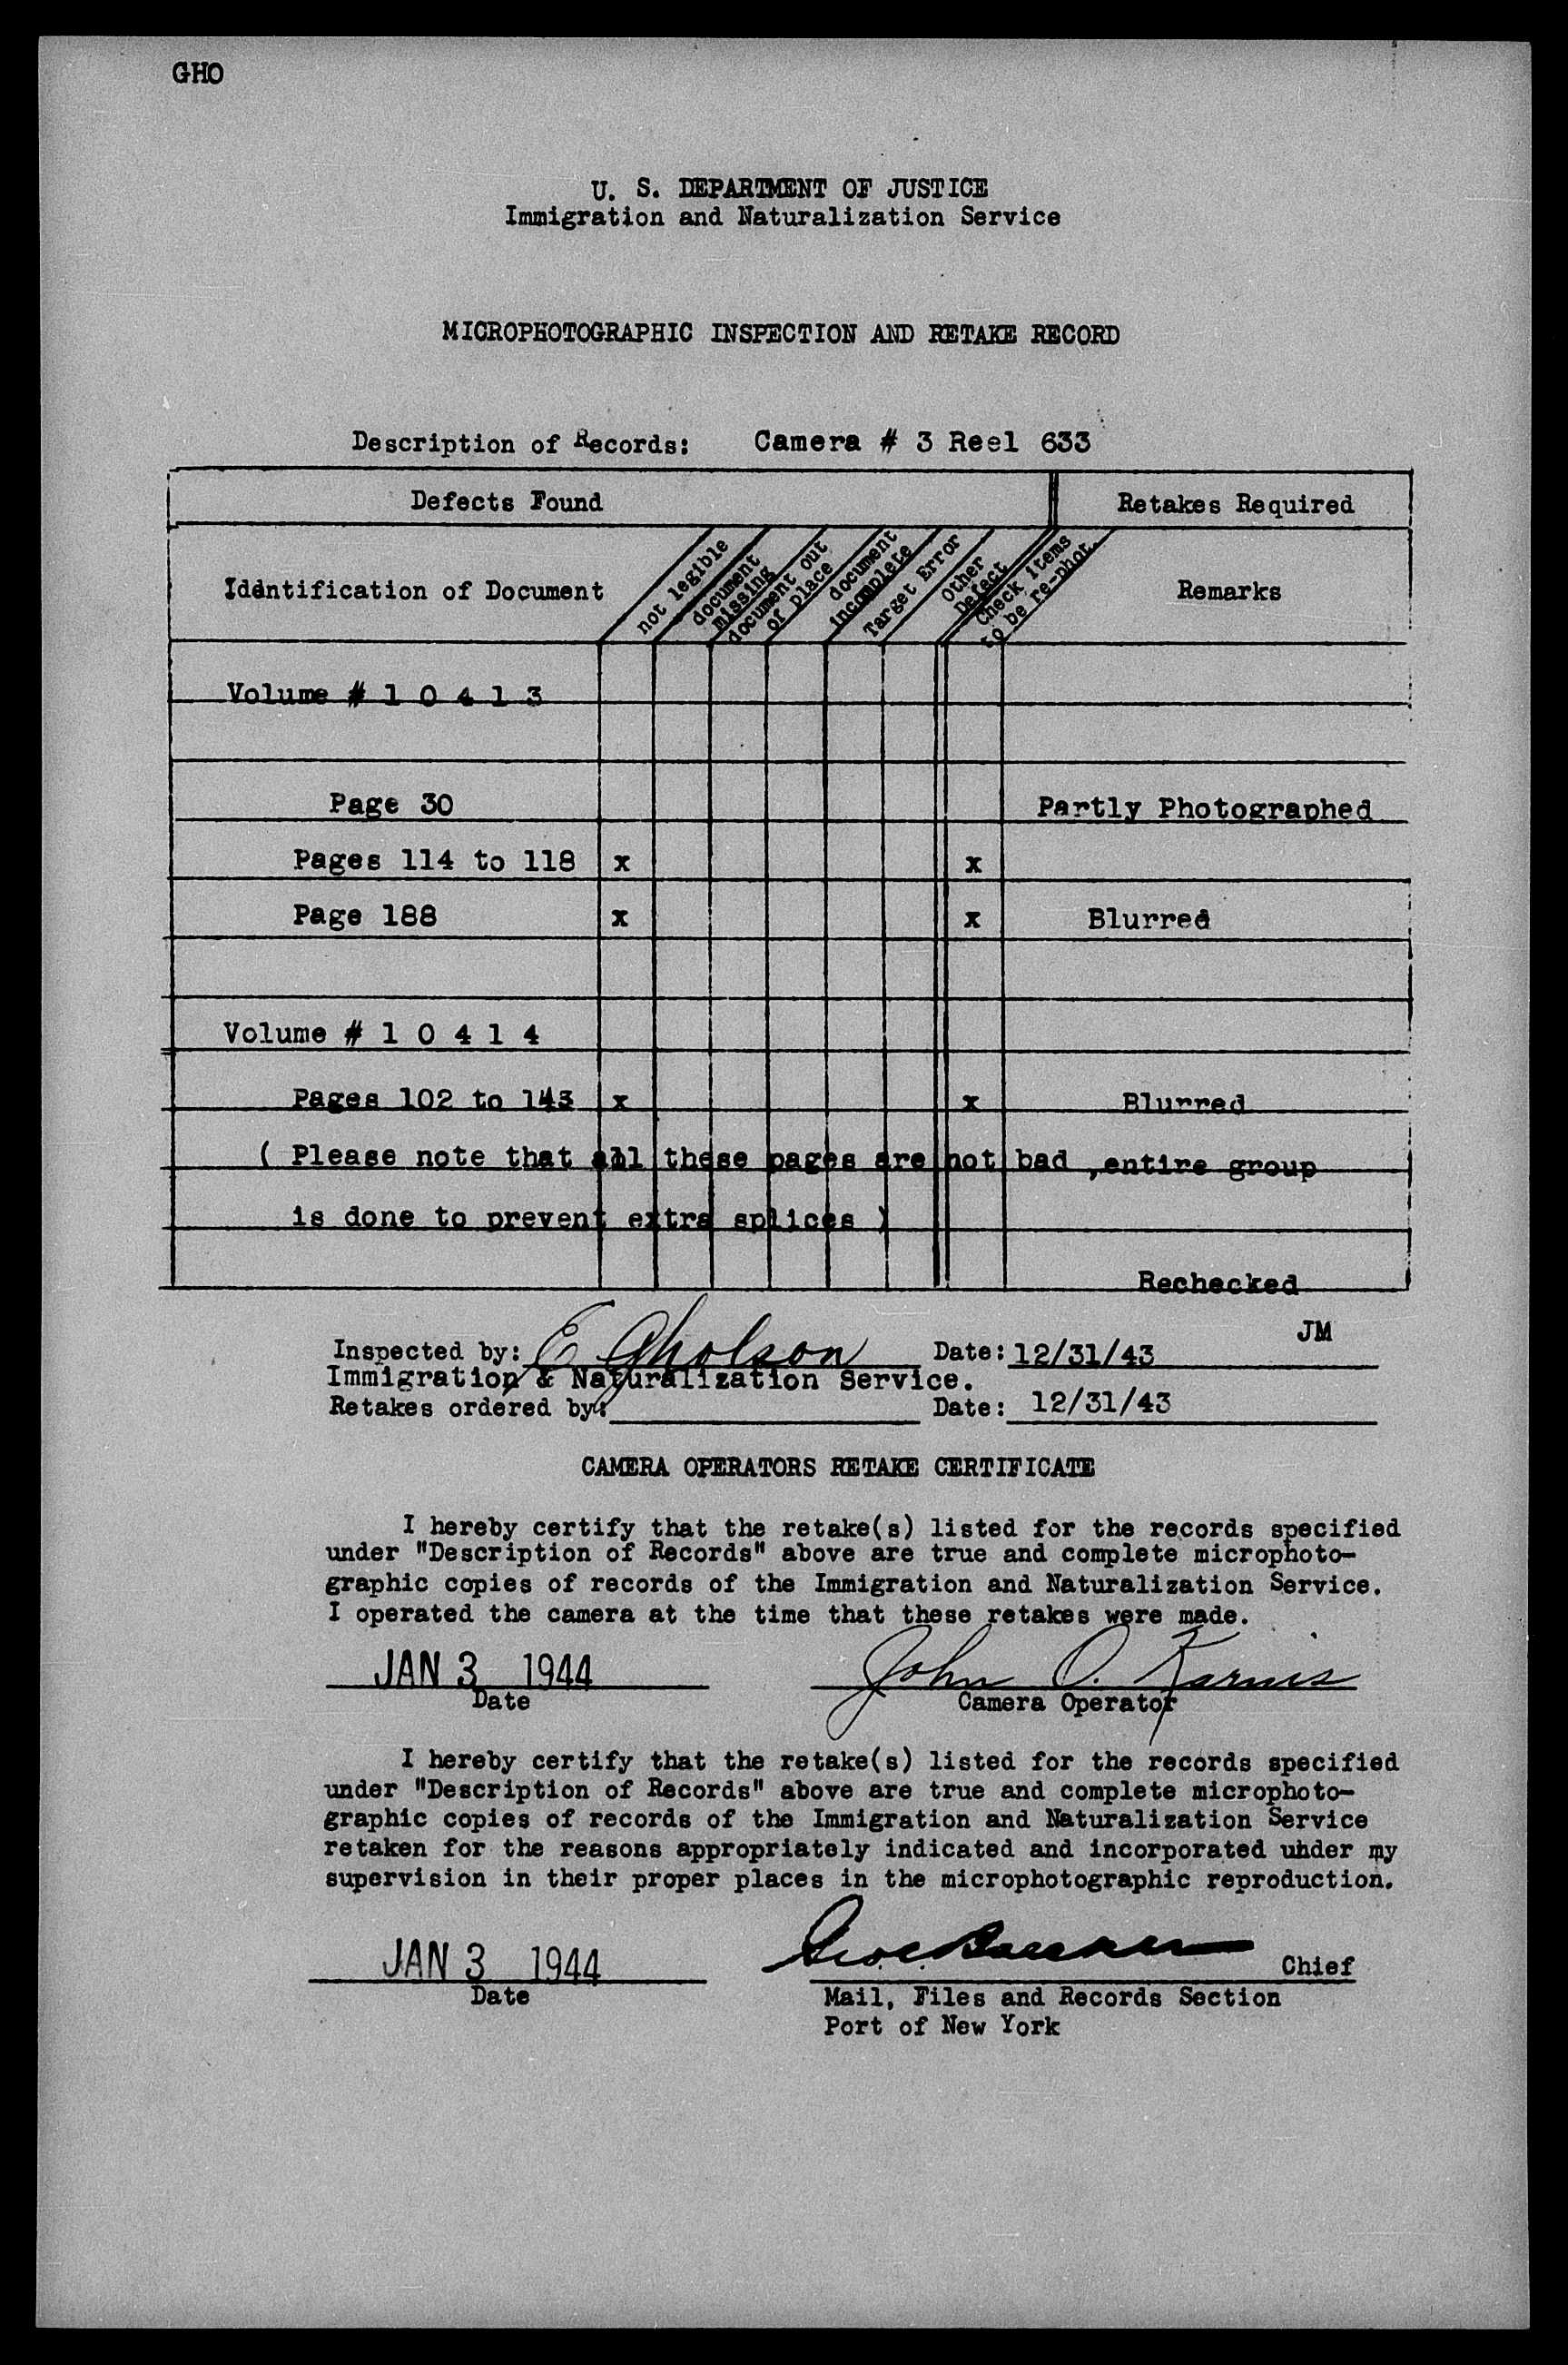 GHO
U. S. DEPARTMENT OF JUSTICE
Immigration and Naturalization Service
MICROPHOTOGRAPHIC INSPECTION AND RETAKE RECORD
Description of Records: Camera # 3 Reel 633
Defects Found Retakes Required
Identification of Document
not legible
document
missing
document out
of place
document
incomplete
Target Error
Other
Defect
Check items
to be re-phot.
Remarks
Volume # 1 0 4 1 3
Page 30 Partly Photographed
Pages 114 to 118 x x
Page 188 x x Blurred
Volume # 1 0 4 1 4
Pages 102 to 143 x x Blurred
( Please note that all these pages are not bad ,entire group
is done to prevent extra splices )
Rechecked
JM
Inspected by: E Gholson Date: 12/31/43
Immigration & Naturalization Service.
Retakes ordered by: Date: 12/31/43
CAMERA OPERATORS RETAKE CERTIFICATE
I hereby certify that the retake(s) listed for the records specified
under "Description of Records" above are true and complete microphoto-
graphic copies of records of the Immigration and Naturalization Service.
I operated the camera at the time that these retakes were made.
JAN 3 1944 John O. Karnis
Date Camera Operator
I hereby certify that the retake(s) listed for the records specified
under "Description of Records" above are true and complete microphoto-
graphic copies of records of the Immigration and Naturalization Service
retaken for the reasons appropriately indicated and incorporated under my
supervision in their proper places in the microphotographic reproduction.
JAN 3 1944 Chief
Date Mail, Files and Records Section
Port of New York